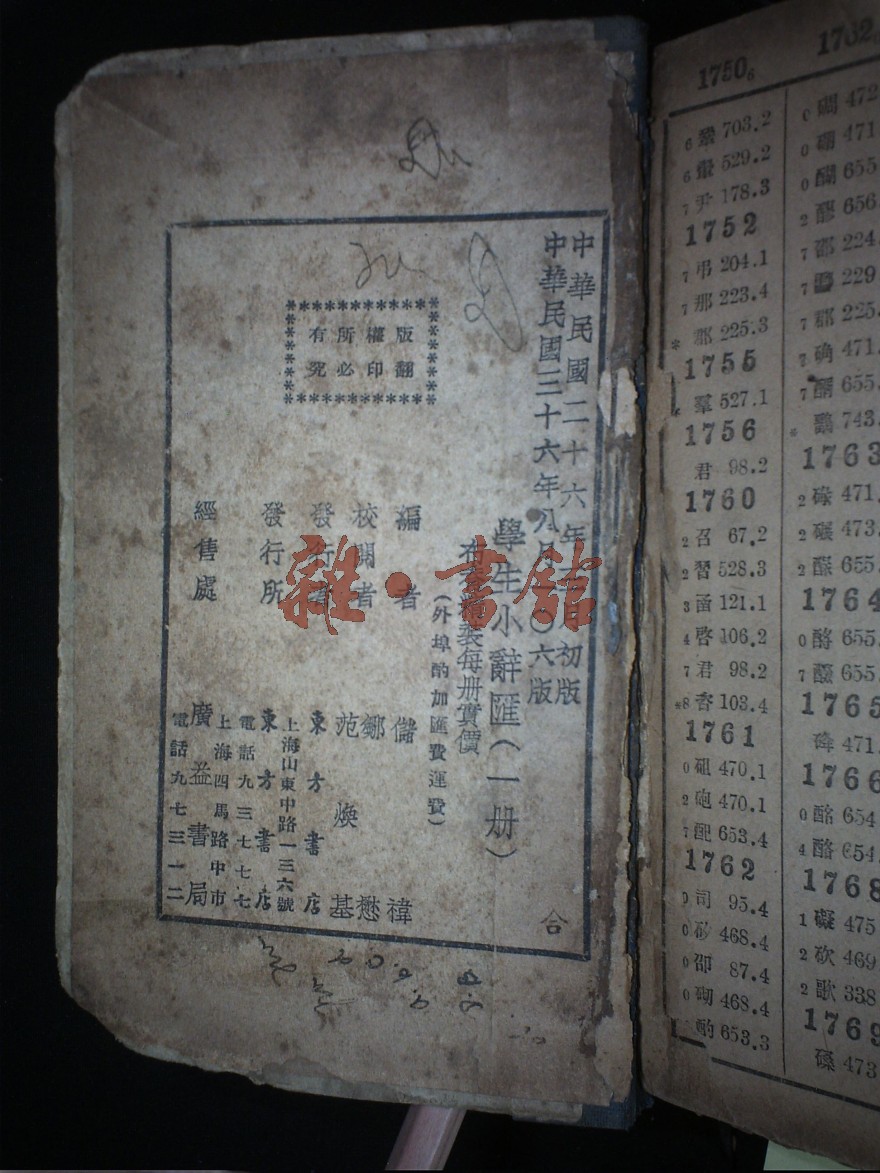 中華民國二十六年 初版
中華民國三十六年八月 六版
學生小辭匯（一册）
裝每册實價
（外埠酌加匯費運費）
版權所有
翻印必究
編者 儲禕
校閱者 鄒懋
范煥基
發行者 東方書店
上海山東中路一三六號
發行所 東方書店
電話九三七七七
上海四馬路中市
經售處 廣益書局
電話九七三一二
合
雜·書館
1750₆
6 鞏 703.2
6 529.2
7 尹 178.3
1752
7 弔 204.1
7 那 223.4
* 郡 225.3
1755
* 羣 527.1
1756
君 98.2
1760
2 召 67.2
2 習 528.3
3 函 121.1
4 啓 106.2
7 君 98.2
*8 香 103.4
1761
0 砠 470.1
2 砲 470.1
7 配 653.4
1762
0 司 95.4
0 砂 468.4
0 卲 87.4
0 砌 468.4
酌 653.3
1762
0 472
0 硼 471
0 醐 655
2 656
7 224
7 229
7 郡 225.
7 确 471.
7 655.
* 743.
1763
2 碌 471.
2 碾 473.
2 655.
1764
0 酪 655.
7 655.
1765
471.
1766
0 酩 654
4 酪 654.
1768
1 礙 475
2 砍 469
2 歌 338
1769
磔 473